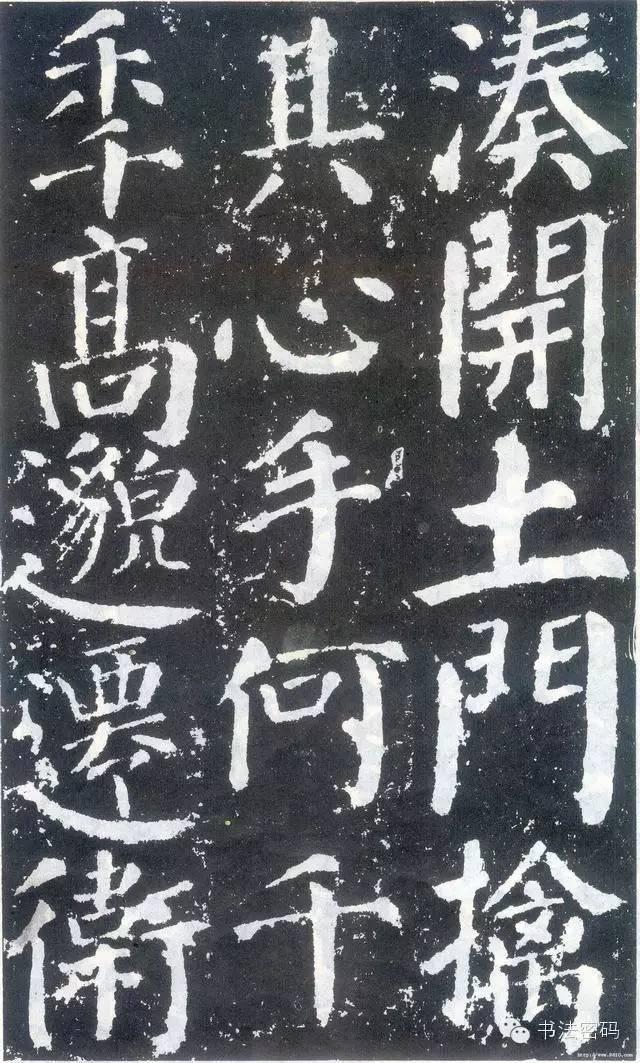 湊開土門擒
其心手何千
秊高邈遷衛
书法密码